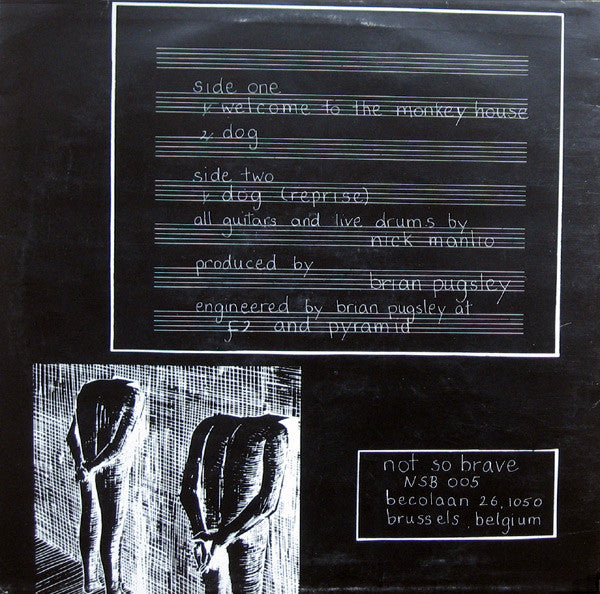 side one
1/ welcome to the monkey house
2/ dog
side two
1/ dog (reprise)
all guitars and live drums by
nick manlio
produced by
brian pugsley
engineered by brian pugsley at
f2 and pyramid
not so brave
NSB 005
becolaan 26, 1050
brussels, belgium